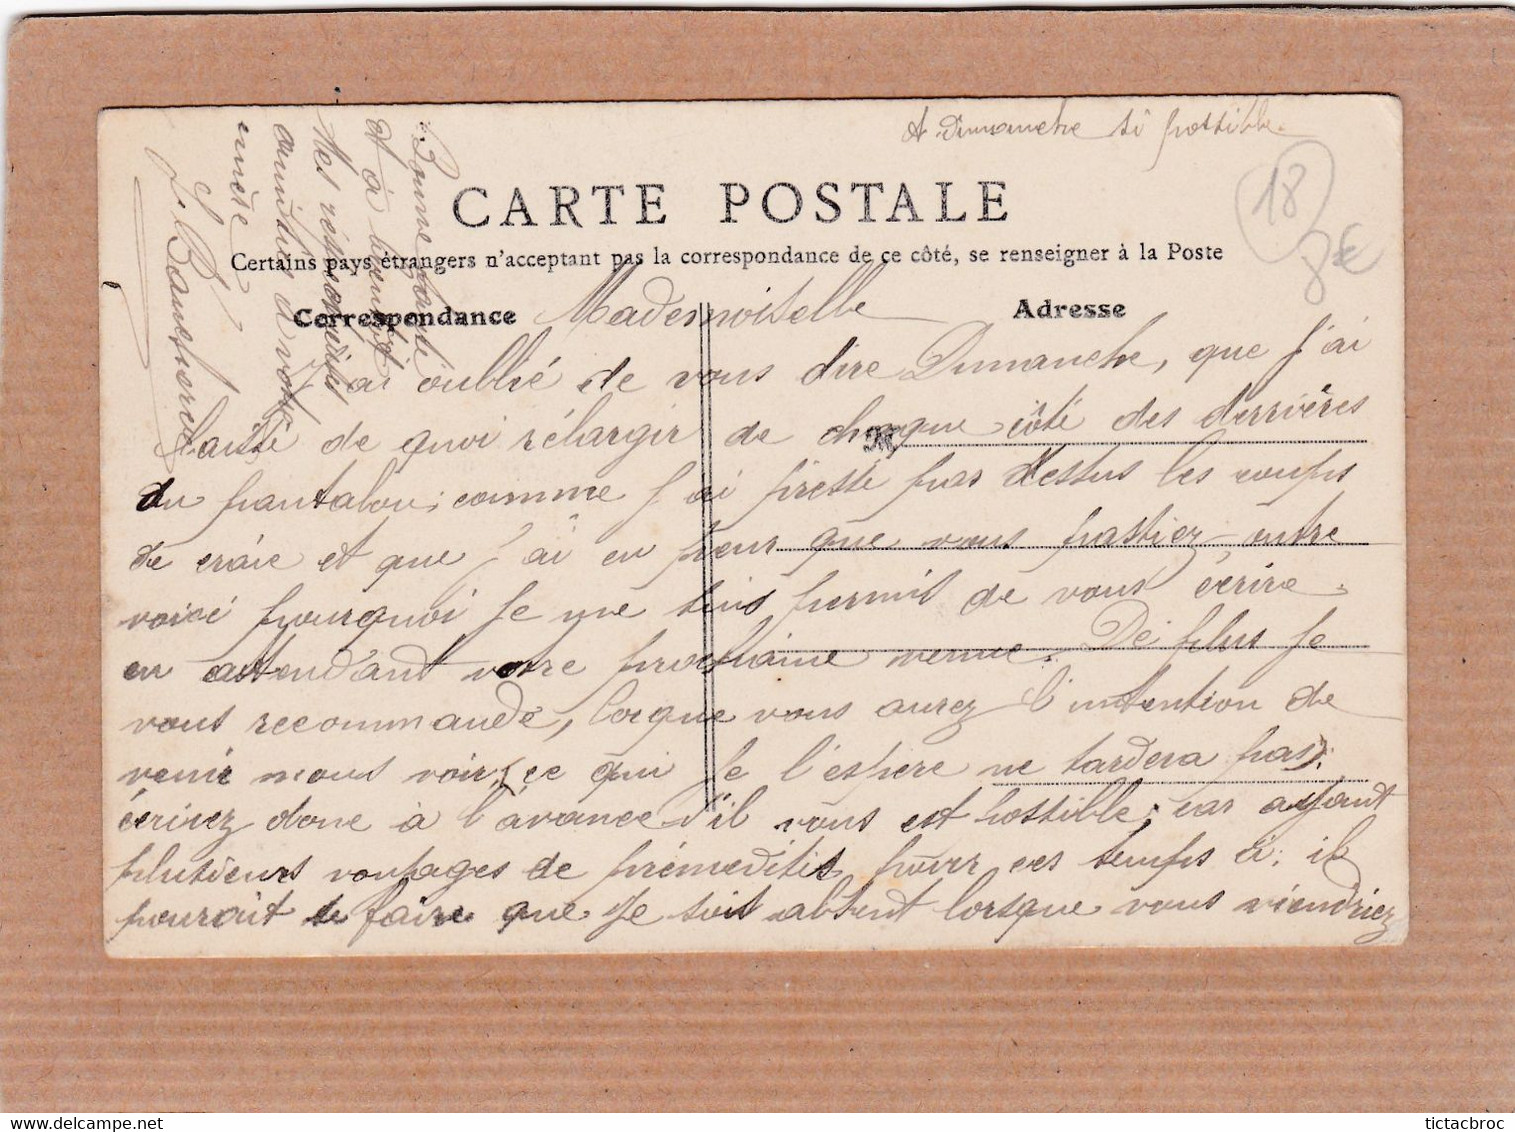 A Dimanche si possible.
18
8€
CARTE POSTALE
Certains pays étrangers n'acceptant pas la correspondance de ce côté, se renseigner à la Poste
Correspondance
Adresse
Mademoiselle
J'ai oublié de vous dire Dimanche, que j'ai
laissé de quoi rélargir de chaque côté des derrières
du pantalon; comme j'ai presse pas dessus les coups
de craie et que j'ai eu peur que vous passiez outre
voici pourquoi je me suis permis de vous écrire
en attendant votre prochaine venue. De plus je
vous recommande, lorque vous aurez l'intention de
venir nous voir, (ce qui je l'espère ne tardera pas);
écrivez donc à l'avance s'il vous est possible; car ayant
plusieurs voyages de prémédités pour ces temps ci; il
pourait se faire que je sois absent lorsque vous viendriez
Bonne Santé
et à bientôt
Mes respectueuses
amitiés à votre
mère